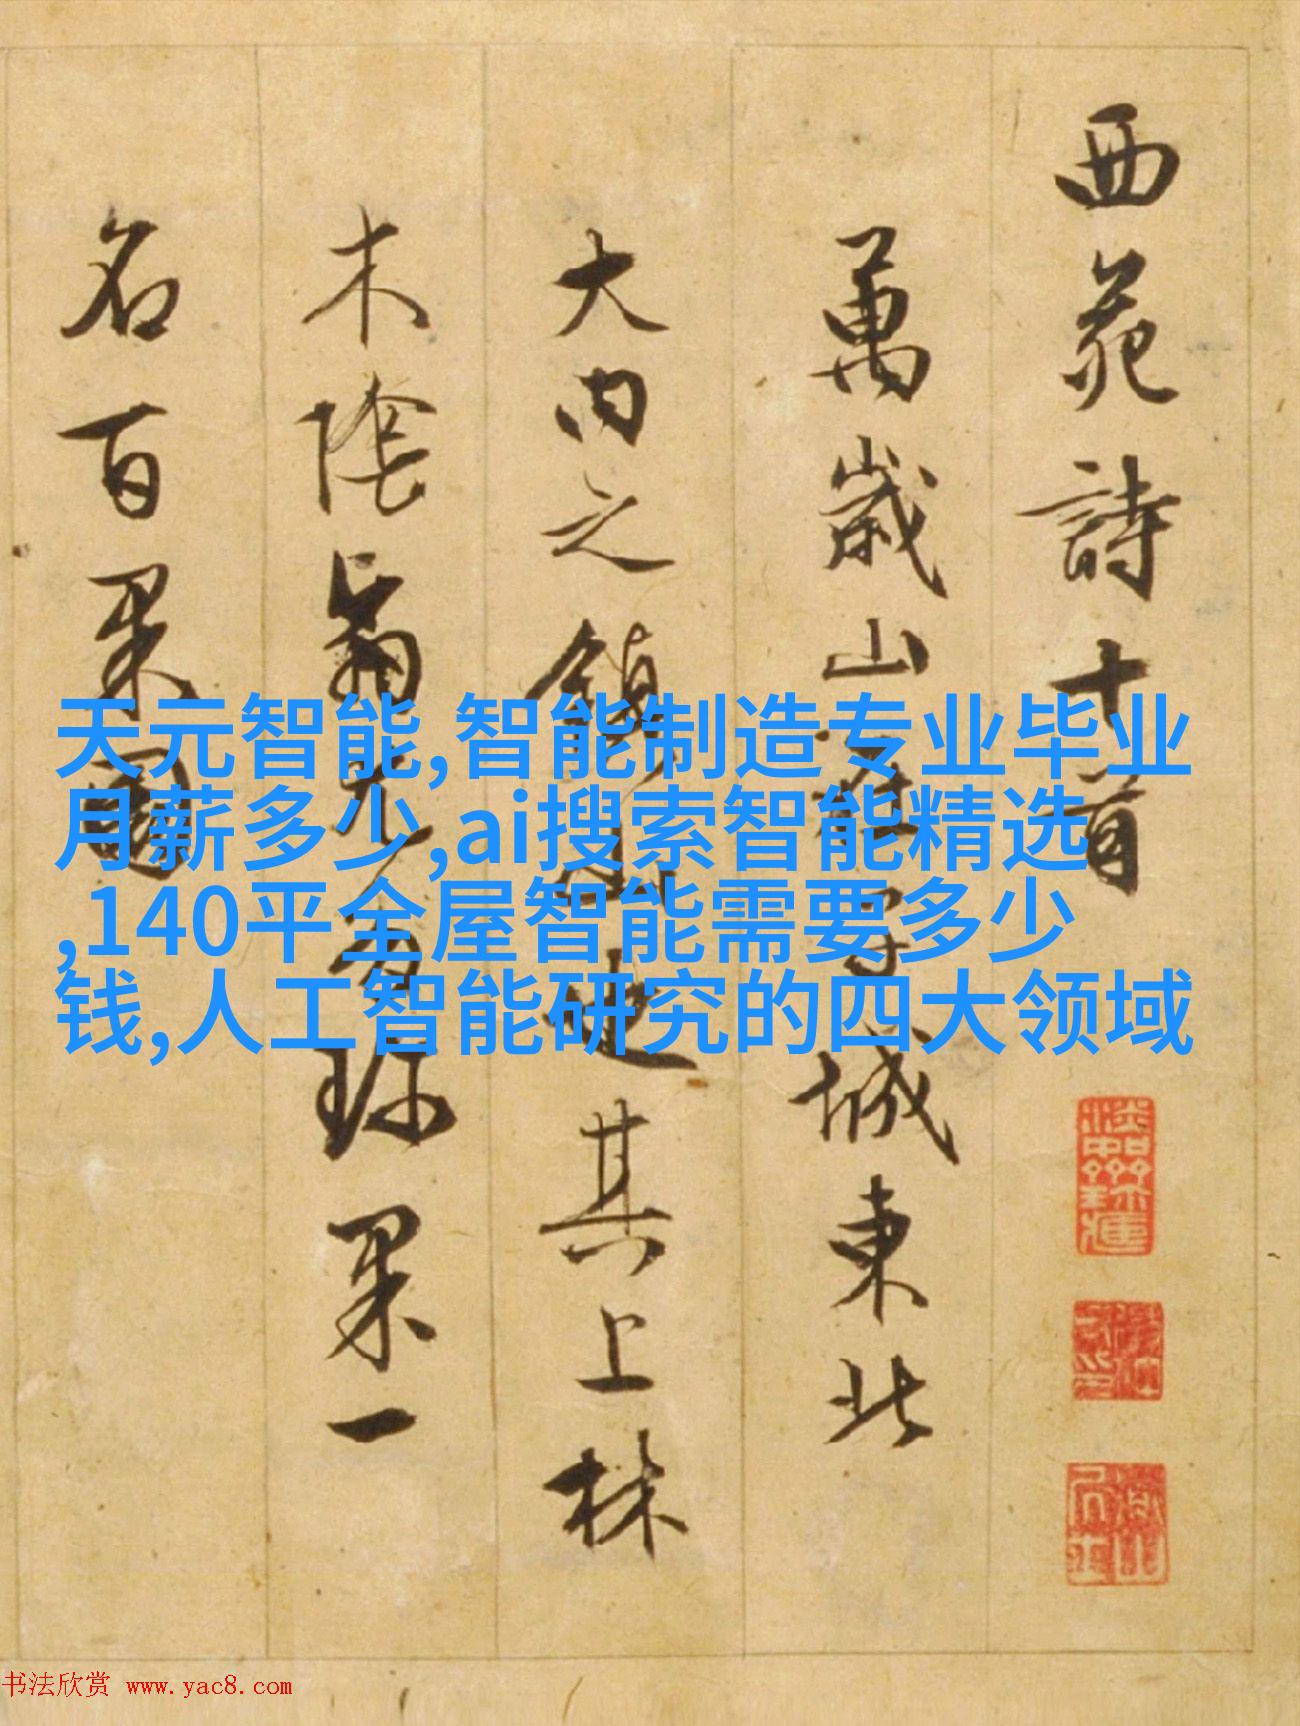 西苑詩十首
萬歲山在子城東北
大内之鎮山也其上林
木陰翳尤多珍果一
名百果園
天元智能,智能制造专业毕业
月薪多少,ai搜索智能精选
,140平全屋智能需要多少
钱,人工智能研究的四大领域
书法欣赏 www.yac8.com